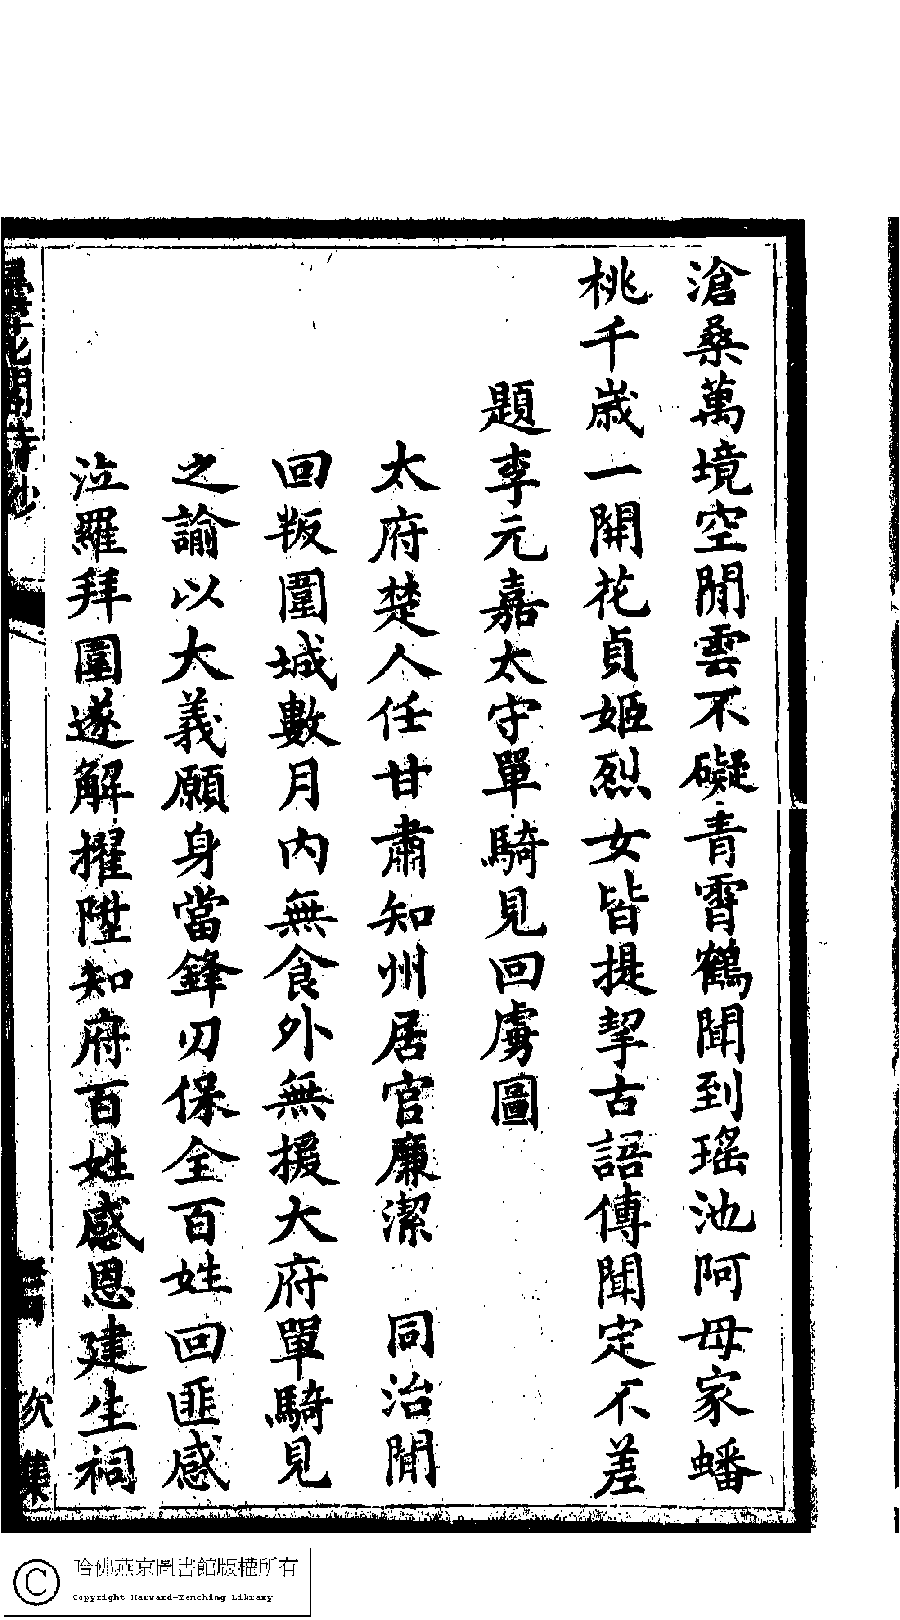 滄桑萬境空閒雲不礙青霄鶴聞到瑤池阿母家蟠
桃千歲一開花貞姬烈女皆提挈古語傳聞定不差
題李元嘉太守單騎見回虜圖
太府楚人任甘肅知州居官廉潔　同治閒
回叛圍城數月內無食外無援大府單騎見
之諭以大義願身當鋒刃保全百姓回匪感
泣羅拜圍遂解擢陞知府百姓感恩建生祠
閣詩鈔
次集
哈佛燕京圖書館版權所有
Copyright Harvard-Yenching Library